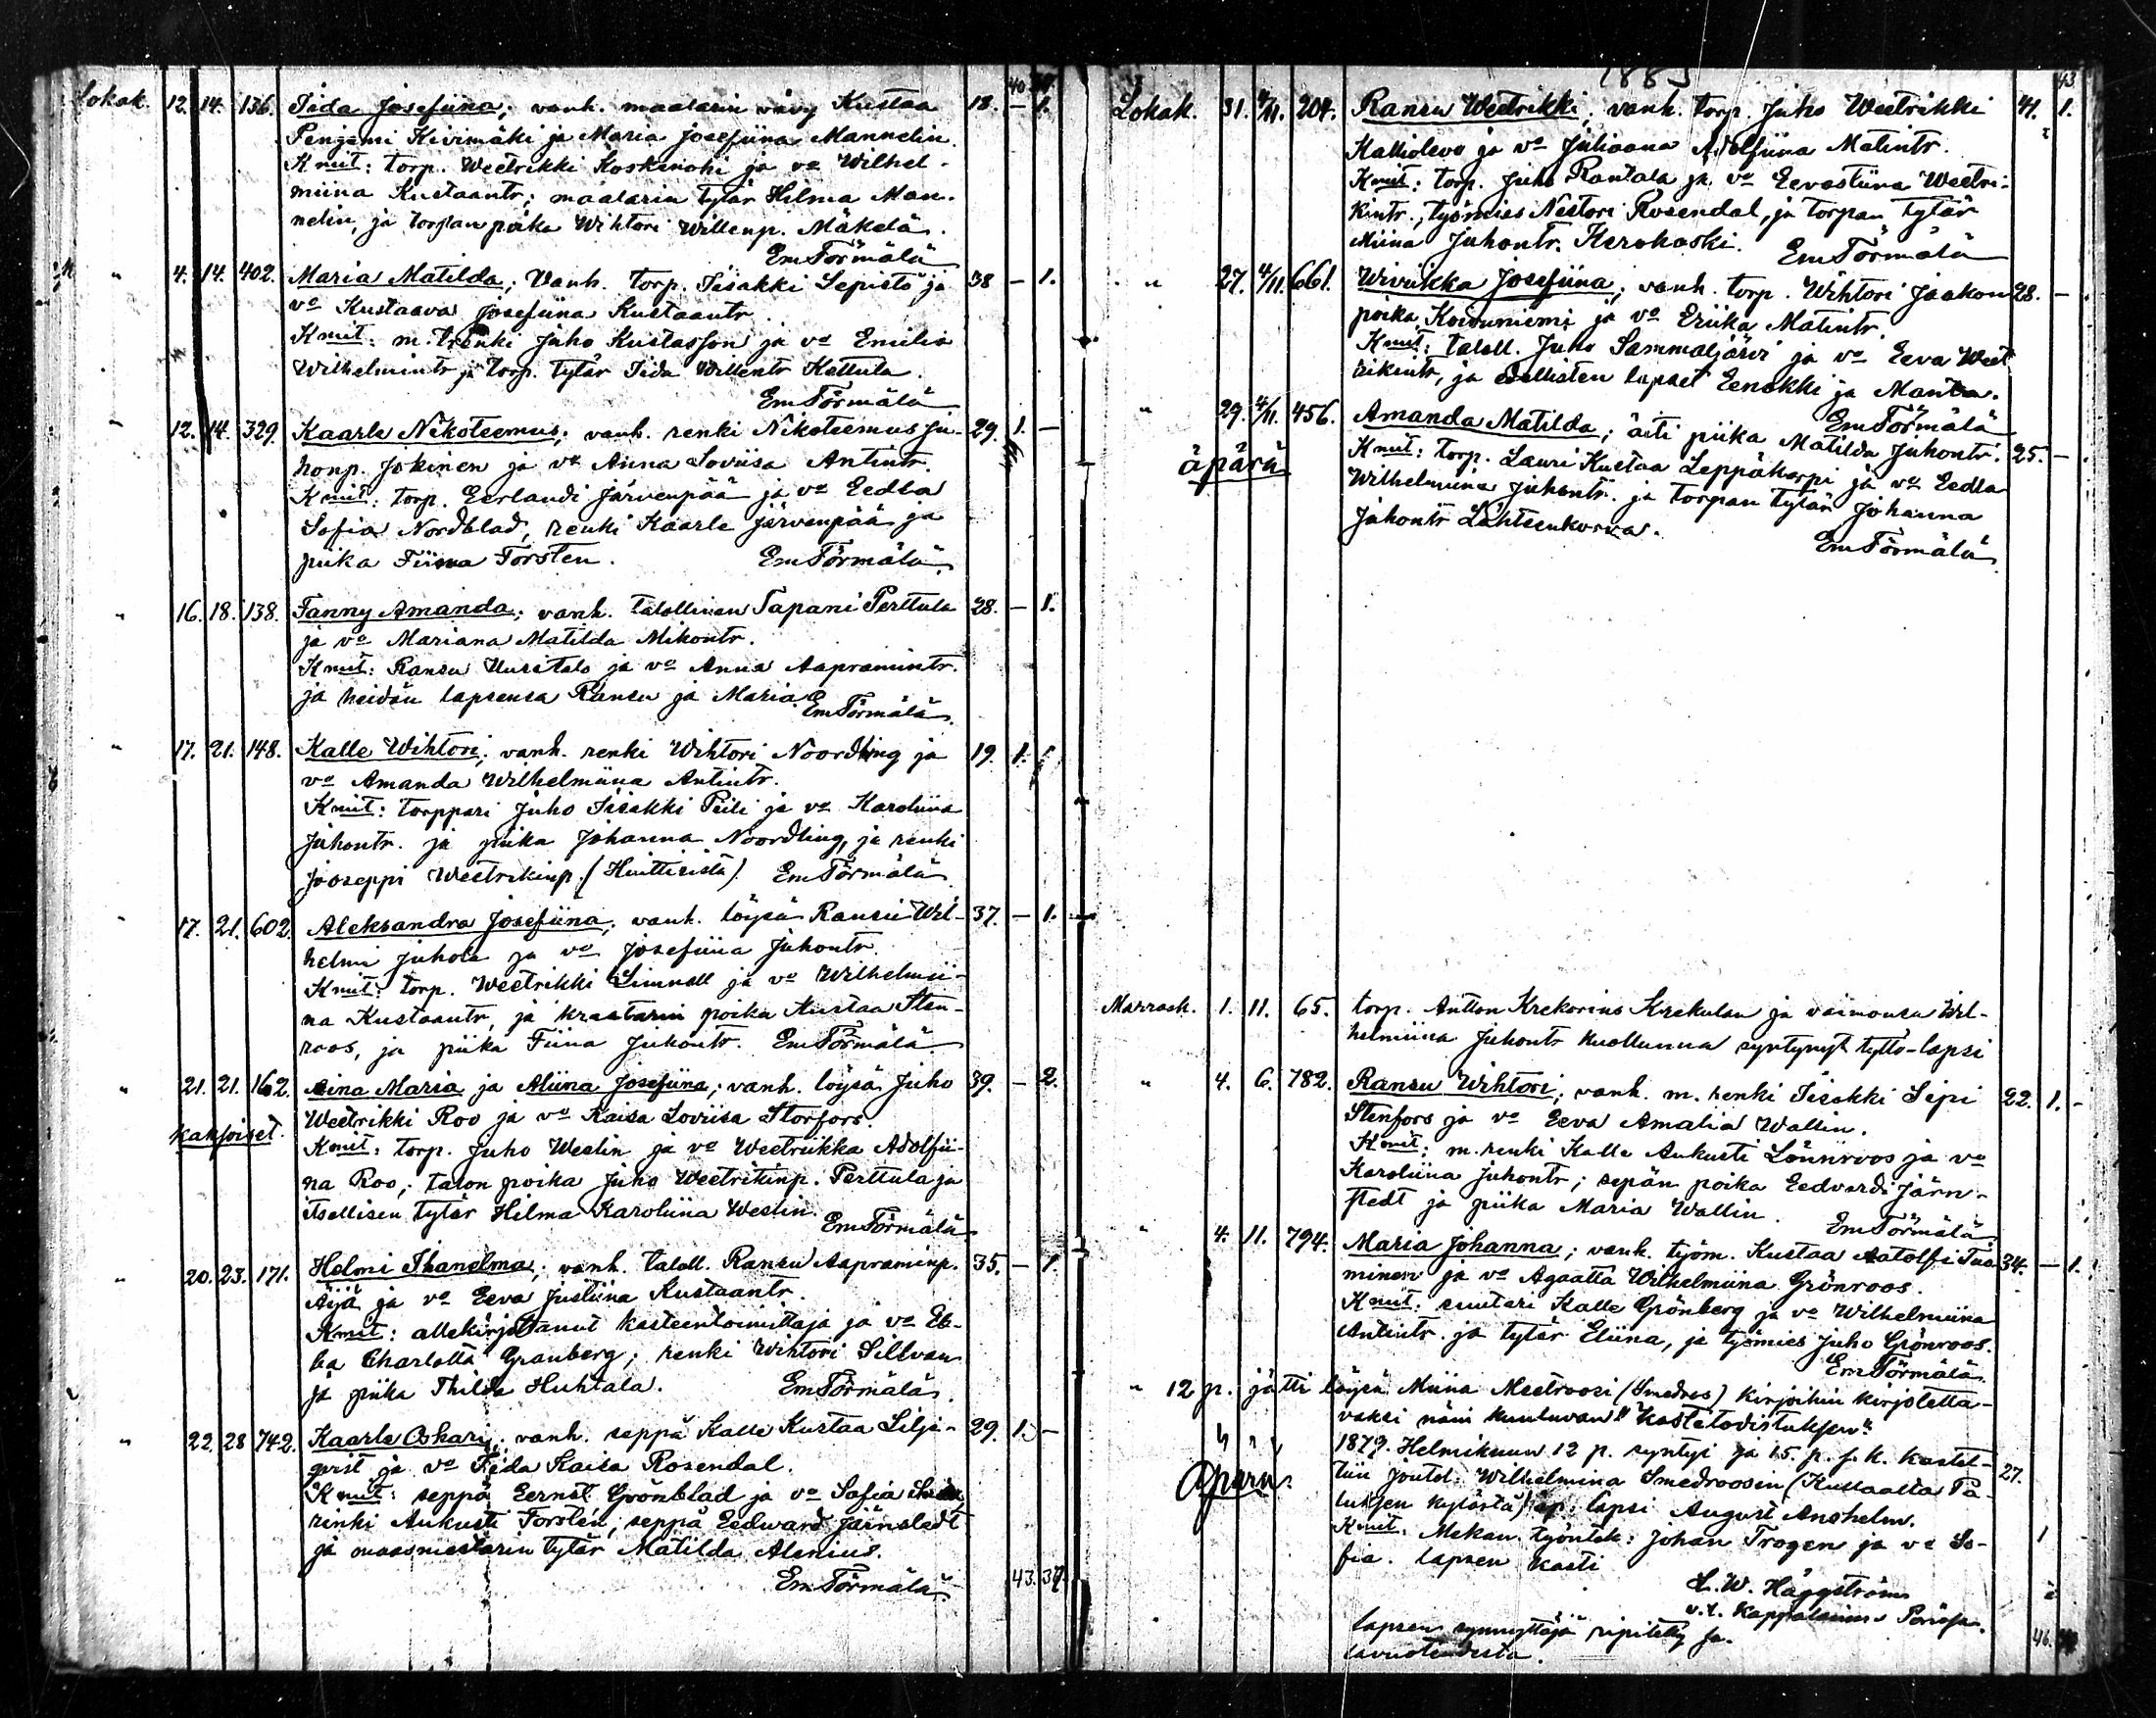 40 37
Lokak. 12. 14. 136. Iida Josefiina; vanh. maalarin vävy Kustaa 18. — 1.
Penjami Kivimäki ja Maria Josefiina Mannelin.
Kmit: torp. Weetrikki Koskenohi ja vo Wilhel-
miina Kustaantr; maalarin tytär Hilma Man-
nelin, ja torpan poika Wihtori Willenp. Mäkelä.
Em Törmälä
" 4. 14. 402. Maria Matilda; Vanh. torp. Iisakki Lepistö ja 38 — 1.
vo Kustaava Josefiina Kustaantr.
Kmit: m. renki Juho Kustasson ja vo Emilia
Wilhelmintr ja torp. tytär Iida Willentr Kattula.
Em Törmälä
" 12. 14. 329. Kaarle Nikoteemus; vanh. renki Nikoteemus Ju- 29. 1. —
honp. Jokinen ja vo Anna Loviisa Antintr.
Kmit: torp. Eerlandi Järvenpää ja vo Eedla
Sofia Nordblad, renki Kaarle Järvenpää ja
piika Fiina Forsten. Em Törmälä
" 16. 18. 138. Fanny Amanda; vanh. talollinen Tapani Perttula 28. — 1.
ja vo Mariana Matilda Mikontr.
Kmit: Ransu Uusitalo ja vo Anna Aapramintr.
ja heidän lapsensa Ransu ja Maria. Em Törmälä
" 17. 21. 148. Kalle Wihtori; vanh. renki Wihtori Noordling ja 19. 1.
vo Amanda Wilhelmiina Antintr.
Kmit: torppari Juho Iisakki Piili ja vo Karoliina
Juhontr. ja piika Johanna Noordling, ja renki
Jooseppi Weetrikinp. (Huittisista) Em Törmälä
" 17. 21. 602. Aleksandra Josefiina; vanh. löysä Ransu Wil- 37. — 1.
helmi Juhola ja vo Josefiina Juhontr.
Kmit: torp. Weetrikki Limnell ja vo Wilhelmii-
na Kustaantr, ja kraatarin poika Kustaa Sten-
roos, ja piika Fiina Juhontr. Em Törmälä
" 21. 21. 162. Aina Maria ja Miina Josefiina; vanh. löysä Juho 39. — 2.
kaksoiset. Weetrikki Roo ja vo Kaisa Loviisa Storfors.
Kmit: torp. Juho Westin ja vo Weetriikka Adolfii-
na Roo; talon poika Juho Weetrikinp. Perttula ja
itsellisen tytär Hilma Karoliina Westin.
Em Törmälä
" 20. 23. 171. Helmi Ihanelma; vanh. taloll. Ransu Aapraminp. 35. — 1.
Äijä ja vo Eeva Justiina Kustaantr.
Kmit: allekirjottanut kasteentoimittaja ja vo Eb-
ba Charlotta Granberg; renki Wihtori Sillvan
ja piika Thilda Huhtala. Em Törmälä
" 22. 28 742. Kaarle Oskari; vanh. seppä Kalle Kustaa Lilje- 29. 1. —
qvist ja vo Iida Kaisa Rosendal.
Kmit: seppä Eernst Grönblad ja vo Sofia
rinki Aukusti Forstén, seppä Eedward Järnstedt
ja maasmestarin tytär Matilda Alenius.
Em Törmälä
43. 37.
1883
43
Lokak. 31. 4/11. 204. Ransu Weetrikki; vanh. torp. Juho Weetrikki 41. 1.
Kalliolevo ja vo Juliaana Adolfiina Matintr.
Kmit: torp. Juho Rantala ja vo Eevastiina Weetri-
kintr., työmies Nestori Rosendal, ja torpan tytär
Miina Juhontr. Kerokoski. Em Törmälä
" 27. 4/11. 661. Wiviikka Josefiina; vanh. torp. Wihtori Jaakon 28. —
poika Koivuniemi ja vo Eriika Matintr.
Kmit: taloll. Juho Sammaljärvi ja vo Eeva Weet
rikintr, ja edellisten lapset Eenokki ja Manta.
Em Törmälä
" 29. 4/11. 456. Amanda Matilda; äiti piika Matilda Juhontr. 25. —
äpärä Kmit: torp. Lauri Kustaa Leppäkorpi ja vo Eedla
Wilhelmiina Juhontr. ja torpan tytär Johanna
Juhontr Lähteenkorva.
Em Törmälä
Marrask. 1. 11. 65. torp. Antton Krekorius Krekulan ja vaimonsa Wil-
helmiina Juhontr kuollunna syntynyt tyttö-lapsi
" 4. 6. 782. Ransu Wihtori; vanh. m. renki Iisakki Sipi 22. 1. -
Stenfors ja vo Eeva Amalia Wallin.
Kmit: m. renki Kalle Aukusti Lönnroos ja vo
Karoliina Juhontr; sepän poika Eedvardi Järn-
stedt ja piika Maria Wallin.
Em Törmälä
" 4. 11. 794. Maria Johanna; vanh. työm. Kustaa Aatolfi Tuo 34. — 1.
minen ja vo Agaatta Wilhelmiina Grönroos.
Kmit: suutari Kalle Grönberg ja vo Wilhelmiina
Antintr. ja tytär Eliina, ja työmies Juho Grönroos.
Em Törmälä
" 12 p. jätti löysä Miina Meetroosi (Smedros) kirjoihin kirjotetta-
vaksi näin kuuluvan "Kastetodistuksen"
1879. Helmikuun 12 p. syntyi ja 15. p. s. k. kastet-
Äpärä. tiin Joutol. Wilhelmina Smedroosin (Kullaalta Pa- 27.
luksen kylästä) äp. lapsi August Anshelm.
Kmit. Mekan. työntek: Johan Trogen ja vo So- 1
fia. lapsen kasti
L. W. Häggström
v.t. Kappalainen Porissa.
lapsen synnyttäjä ripitetty ja.
46.